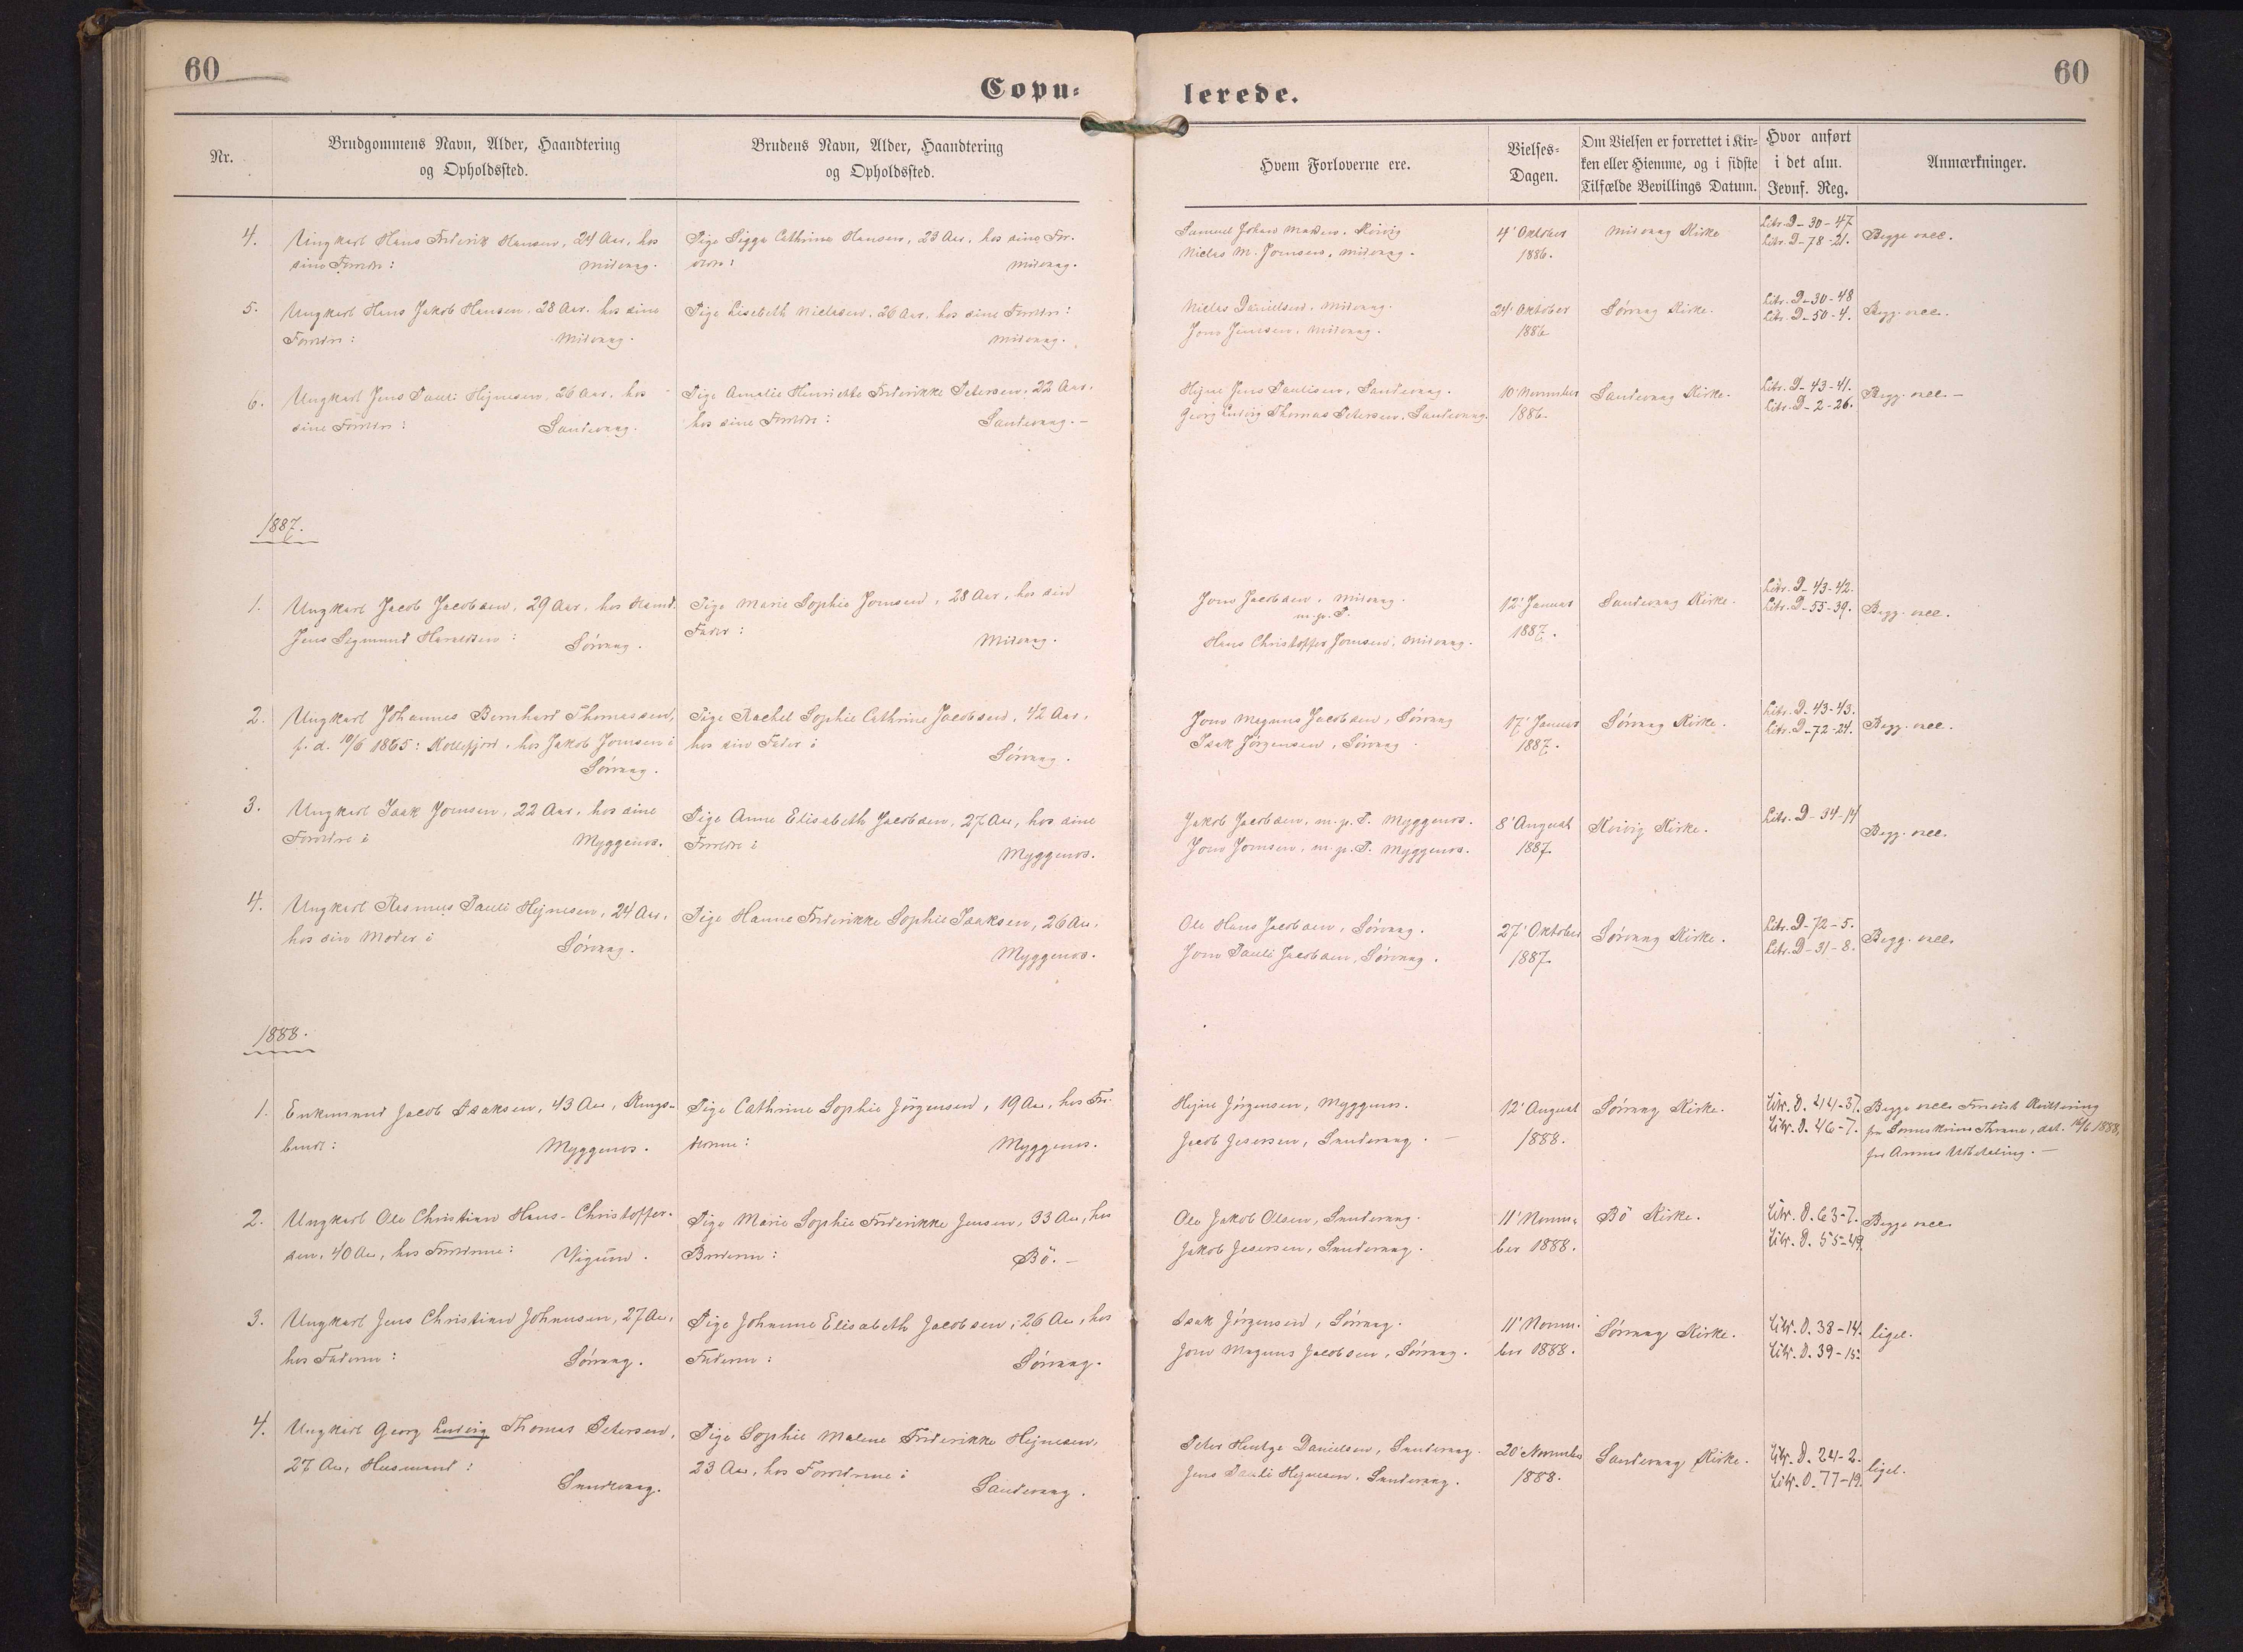 60
60
Copu=
lerede.
Nr.
Brudgommens Navn, Alder, Haandtering
og Opholdssted.
Brudens Navn, Alder, Haandtering
og Opholdssted.
Hvem Forloverne ere.
Vielses-
Dagen.
Om Vielsen er forrettet i Kir-
ken eller Hjemme, og i sidste
Tilfælde Bevillings Datum.
Hvor anført
i det alm.
Jevnf. Reg.
Anmærkninger.
4.
Ungkarl Hans Friderik Hansen, 24 Aar, hos
sine Forældre: Midvaag.
Pige Sigga Cathrine Hansen, 23 Aar, hos sine For-
ældre: Midvaag.
Samuel Johan Madsen, Kvivig
Niclas M. Joensen, Midvaag.
4' Oktober
1886.
Midvaag Kirke
Litr. D-30-47
Litr. D-78-21.
Begge vacc.
5.
Ungkarl Hans Jakob Hansen, 28 Aar, hos sine
Forældre: Midvaag.
Pige Lisebeth Niclasen, 26 Aar, hos sine Forældre:
Midvaag.
Niclas Danielsen, Midvaag.
Jens Joensen, Midvaag.
24' Oktober
1886
Sörvaag Kirke.
Litr. D-30-48
Litr. D-50-4.
Begg. vacc.
6.
Ungkarl Jens Pauli Hejnesen, 26 Aar, hos
sine Forældre: Sandevaag.
Pige Amalie Henriette Friderikke Petersen, 22 Aar,
hos sine Forældre: Sandevaag. -
Hejne Jens Paulisen, Sandevaag.
Georg Ludvig Thomas Petersen, Sandevaag.
10' November
1886.
Sandevaag Kirke.
Litr. D-43-41.
Litr. D-2-26.
Begg. vacc. -
1887.
1.
Ungkarl Jacob Jacobsen, 29 Aar, hos Husmd.
Jens Segmund Haraldsen: Sörvaag.
Pige Marie Sophie Joensen, 28 Aar, hos sin
Fader: Midvaag.
Joen Jacobsen, Midvaag.
m. p. P.
Hans Christoffer Joensen, Midvaag.
12' Januar
1887.
Sandevaag Kirke.
Litr. D-43-42.
Litr. D-55-39.
Begg. vacc.
2.
Ungkarl Johannes Bernhard Thomassen,
f. d. 10/6 1865: Kollefjord, hos Jakob Joensen i
Sörvaag.
Pige Rachel Sophie Cathrine Jacobsen, 42 Aar,
hos sin Fader i
Sörvaag.
Joen Magnus Jacobsen, Sörvaag
Isak Jörgensen, Sörvaag.
17' Januar
1887.
Sörvaag Kirke.
Litr. D-43-43.
Litr. D-72-24.
Begg. vacc.
3.
Ungkarl Isak Joensen, 22 Aar, hos sine
Forældre i Myggenæs.
Pige Anne Elisabeth Jacobsen, 27 Aar, hos sine
Forældre i
Myggenæs.
Jakob Jacobsen, m. p. P. Myggenæs.
Joen Joensen, m. p. P. Myggenæs.
8' August
1887.
Kvivig Kirke.
Litr. D-34-14
Begg. vacc.
4.
Ungkarl Rasmus Pauli Hejnesen, 24 Aar,
hos sin Moder i Sörvaag.
Pige Hanne Friderikke Sophie Isaksen, 26 Aar,
Myggenæs.
Ole Hans Jacobsen, Sörvaag.
Joen Pauli Jacobsen, Sörvaag.
27' Oktober
1887.
Sörvaag Kirke.
Litr. D-72-5.
Litr. D-31-8.
Begg. vacc.
1888.
1.
Enkemand Jacob Isaksen, 43 Aar, Kongs-
bonde: Myggenæs.
Pige Cathrine Sophie Jörgensen, 19 Aar, hos For-
ældrene: Myggenæs.
Hejne Jörgensen, Myggenæs.
Jacob Jesersen, Sandevaag. -
12' August
1888.
Sörvaag Kirke.
Litr. D. 44-37.
Litr. D. 46-7.
Begge vacc. Forevist Kvittering
fra Sorenskriver Thrane, dat. 16/6 1888,
for Arvens Udbetaling. -
2.
Ungkarl Ole Christian Hans-Christoffer-
sen, 40 Aar, hos Forældrene: Vigum.
Pige Marie Sophie Friderikke Jensen, 33 Aar, hos
Broderen: Bö. -
Ole Jakob Olsen, Sandevaag.
Jakob Jesersen, Sandevaag.
11' Novem-
ber 1888.
Bö Kirke.
Litr. D. 63-7.
Litr. D. 55-49.
Begge vacc.
3.
Ungkarl Jens Christian Johannesen, 27 Aar,
hos Faderen: Sörvaag.
Pige Johanne Elisabeth Jacobsen, 26 Aar, hos
Faderen: Sörvaag.
Isak Jörgensen, Sörvaag.
Joen Magnus Jacobsen, Sörvaag.
11' Novem-
ber 1888.
Sörvaag Kirke.
Litr. D. 38-14.
Litr. D. 39-15.
ligel.
4.
Ungkarl Georg Ludvig Thomas Petersen,
27 Aar, Husmand:
Sandevaag.
Pige Sophie Malene Friderikke Hejnesen,
23 Aar, hos Forældrene i
Sandevaag.
Peter Hentze Danielsen, Sandevaag.
Jens Pauli Hejnesen, Sandevaag.
20' November
1888.
Sandevaag Kirke.
Litr. D. 24-2.
Litr. D. 77-19.
ligel.